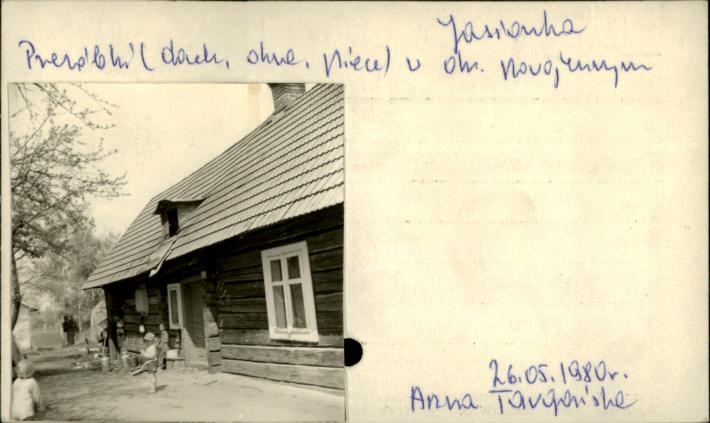 Jasionka
Przeróbki (dach, okna, piece) w okr. powojennym
26.05.1980r.
Anna Targońska